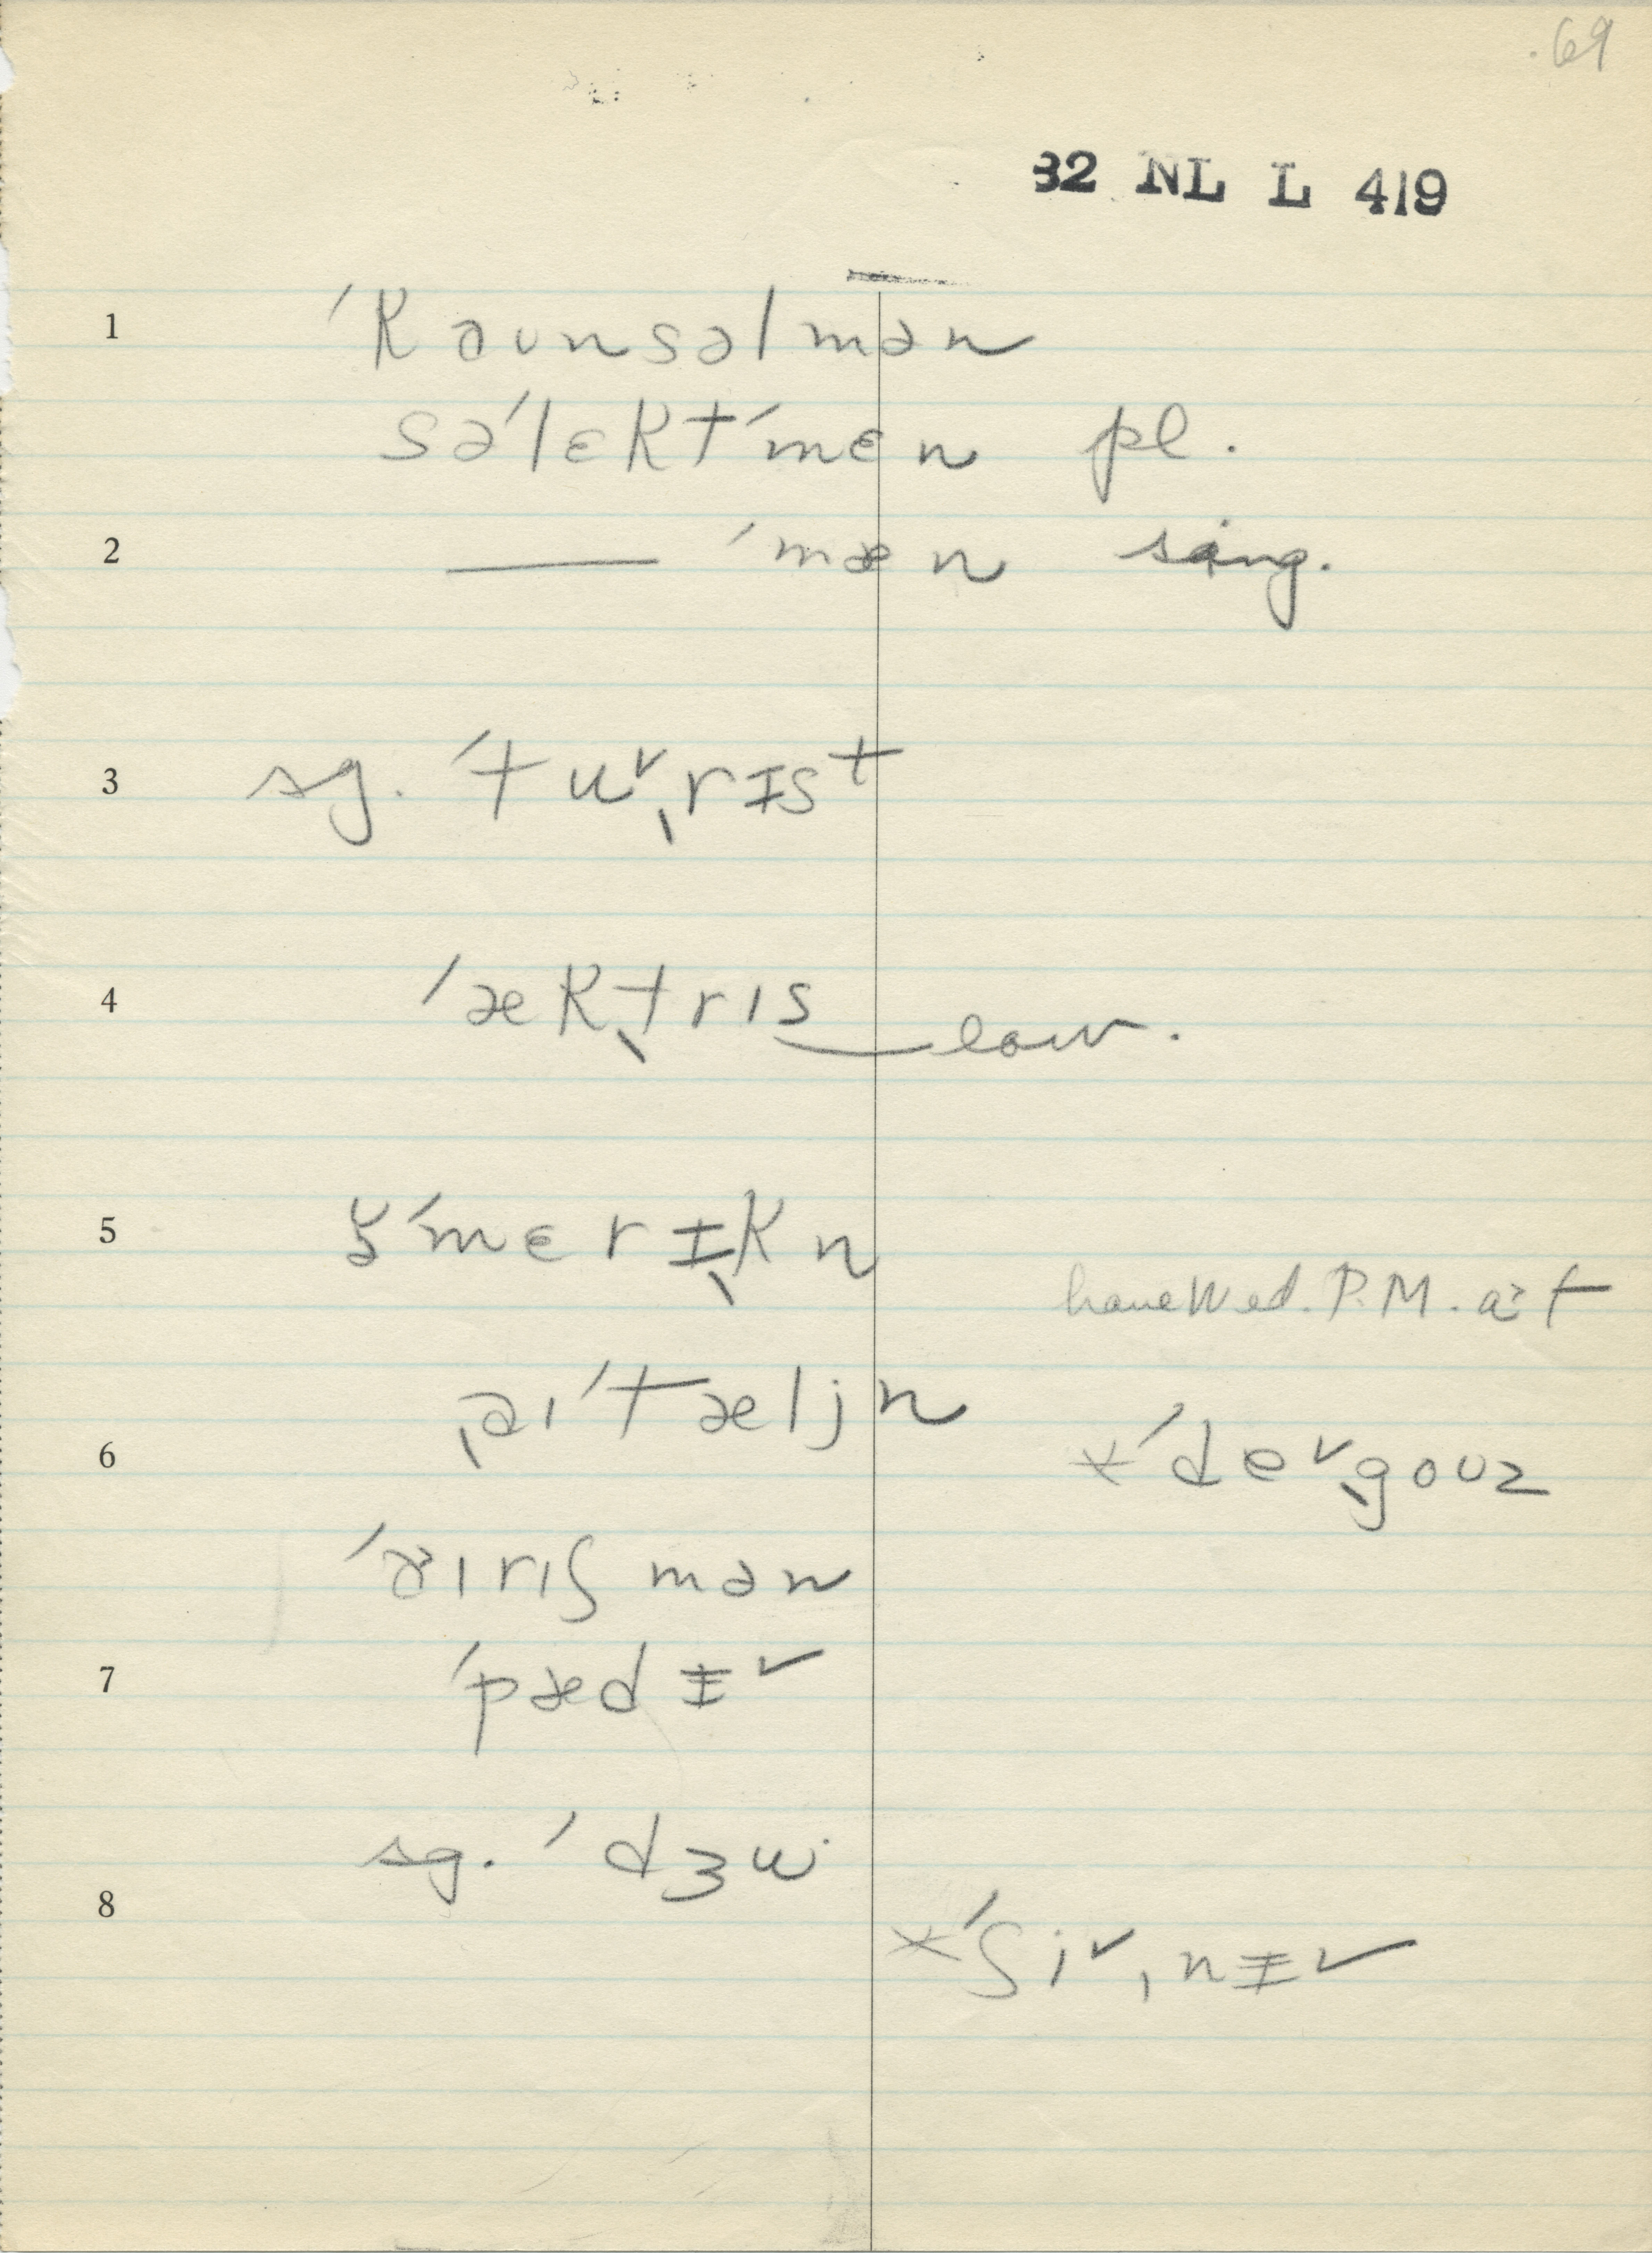 69
32 NL L 419
1 ˈkəʊnsəlmən
səˈlɛktˈmɛn pl.
2 —— ˈmæn sing.
3 sg. ˈtu˅ˌrɪst
4 ˈækˌtrɪs law.
5 ˈmɛrɪˌkn
have Wed. P.M. art
6 ˌəɪˈtæljn
*ˈde˅ˌgoʊz
ˈəɪrɪʃmən
7 ˈpædɪ˅
sg. ˈdʒu
8
*ˈʃi˅ˌnɪ˅